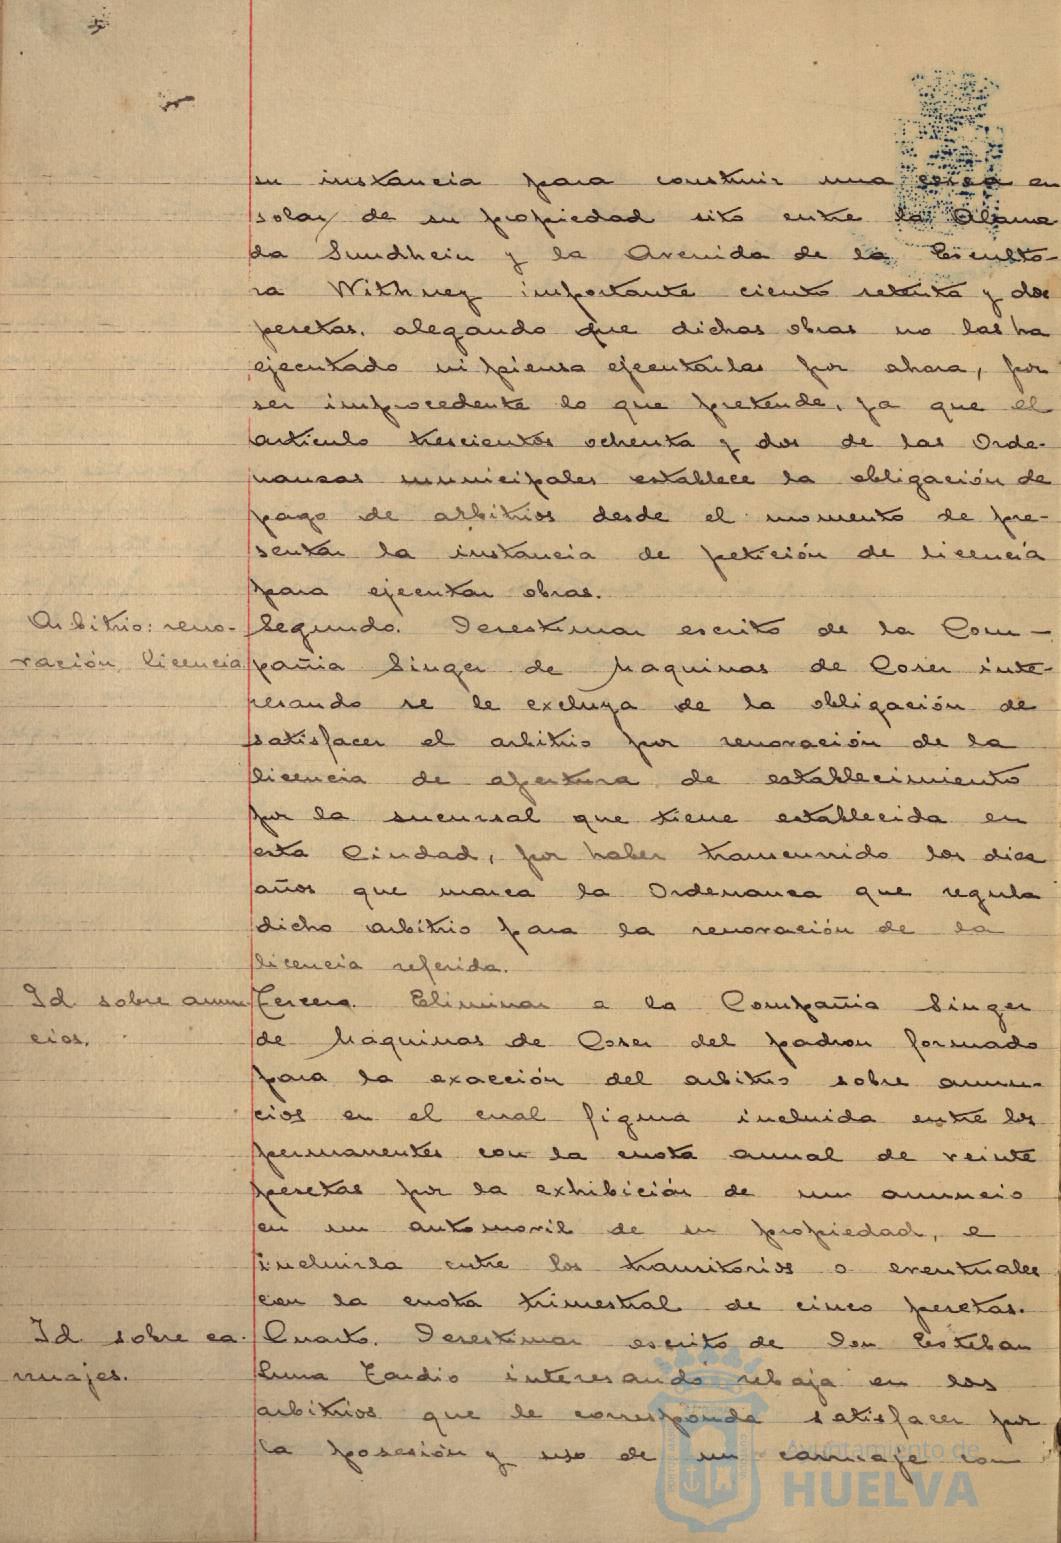 su instancia para construir una cerca en
solar de su propiedad sito entre la Alame
da Sundhein y la Avenida de la Esculto-
ra Withney importante ciento setenta y dos
pesetas, alegando que dichas obras no las ha
ejecutado ni piensa ejecutarlas por ahora, por
ser improcedente lo que pretende, ya que el
artículo trescientos ochenta y dos de las Orde-
nanzas municipales establece la obligación de
pago de arbitrios desde el momento de pre-
sentar la instancia de petición de licencia
para ejecutar obras.
Arbitrio: reno-
vación licencia
Segundo. Desestimar escrito de la Com-
pañia Singer de Maquinas de Coser inte-
resando se le excluya de la obligación de
satisfacer el arbitrio por renovación de la
licencia de apertura de establecimiento
por la sucursal que tiene establecida en
esta Ciudad, por haber transcurrido los diez
años que marca la Ordenanza que regula
dicho arbitrio para la renovación de la
licencia referida.
Id sobre anun-
cios.
Tercero. Eliminar a la Compañia Singer
de Maquinas de Coser del padron formado
para la exacción del arbitrio sobre anun-
cios en el cual figura incluida entre los
permanentes con la cuota anual de veinte
pesetas por la exhibición de un anuncio
en un automovil de su propiedad, e
incluirla entre los transitorios o eventuales
con la cuota trimestral de cinco pesetas.
Id sobre ca-
rruajes.
Cuarto. Desestimar escrito de Don Esteban
Luna Tardio interesando rebaja en los
arbitrios que le corresponda satisfacer por
la posesión y uso de un carruaje con
Ayuntamiento de
HUELVA